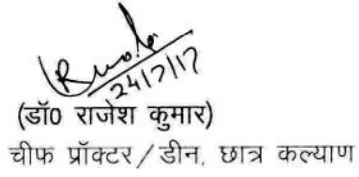 24/7/17
(डॉ0 राजेश कुमार)
चीफ प्रॉक्टर/डीन, छात्र कल्याण